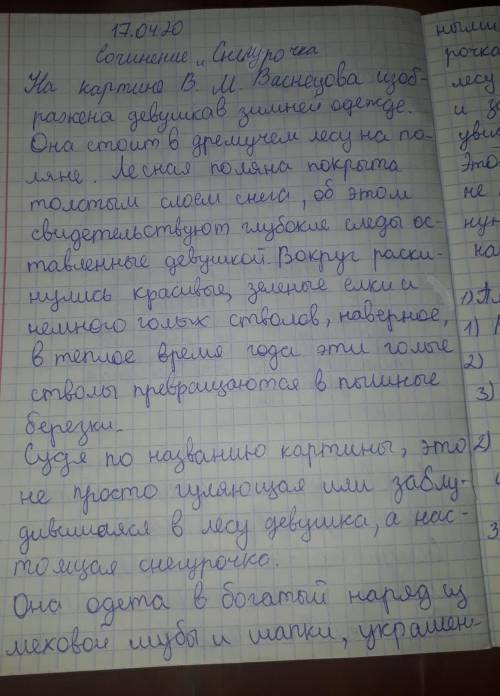 17.04.20
Сочинение „Снегурочка
На картине В. М. Васнецова изоб-
ражена девушка в зимней одежде.
Она стоит в дремучем лесу на по-
ляне. Лесная поляна покрыта
толстым слоем снега, об этом
свидетельствуют глубокие следы ос-
тавленные девушкой. Вокруг раски-
нулись красивые, зеленые елки и
немного голых стволов, наверное,
в теплое время года эти голые
стволы превращаются в пышные
березки.
Судя по названию картины, это
не просто гуляющая или заблу-
дившаяся в лесу девушка, а нас-
тоящая снегурочка.
Она одета в богатый наряд из
меховой шубы и шапки, украшен-
ными
рочка
лесу
и з
уви
Это
не
нун
на
1) Пл
1)
2)
3)
2)
3